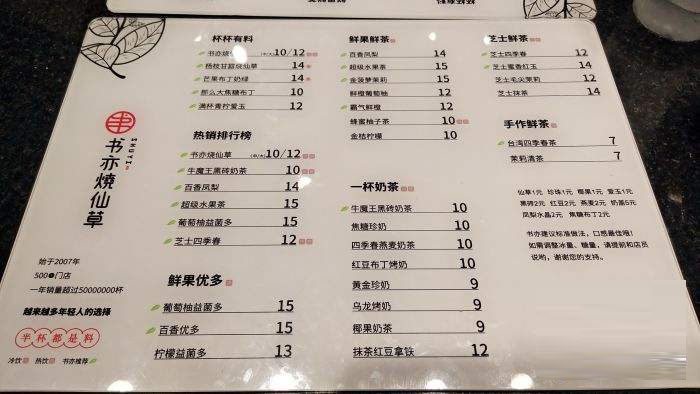 书亦燒仙草
SHUYI
始于2007年
500门店
一年销量超过50000000杯
越来越多年轻人的选择
半杯都是料
冷饮 热饮 书亦推荐
杯杯有料
书亦烧仙草 (中/大) 10/12
杨枝甘露烧仙草 14
芒果布丁奶绿 14
那么大焦糖布丁 10
满杯青柠爱玉 12
热销排行榜
书亦烧仙草 (中/大) 10/12
牛魔王黑砖奶茶 10
百香凤梨 14
超级水果茶 15
葡萄柚益菌多 15
芝士四季春 12
鲜果优多
葡萄柚益菌多 15
百香优多 15
柠檬益菌多 13
鲜果鲜茶
百香凤梨 14
超级水果茶 15
金菠萝茉莉 15
鲜橙葡萄柚 12
霸气鲜橙 12
蜂蜜柚子茶 10
金桔柠檬 10
一杯奶茶
牛魔王黑砖奶茶 10
焦糖珍奶 10
四季春燕麦奶茶 10
红豆布丁烤奶 10
黄金珍奶 9
乌龙烤奶 9
椰果奶茶 9
抹茶红豆拿铁 12
芝士鲜茶
芝士四季春 12
芝士蜜香红玉 14
芝士毛尖茉莉 12
芝士抹茶 14
手作鲜茶
台湾四季春茶 7
茉莉清茶 7
仙草1元 珍珠1元 椰果1元 爱玉1元
黑砖2元 红豆2元 燕麦2元 奶盖5元
凤梨水晶2元 焦糖布丁2元
书亦建议标准做法,口感最佳哦!
如需调整冰量、糖量,请提前和店员
说哟,谢谢您的支持。